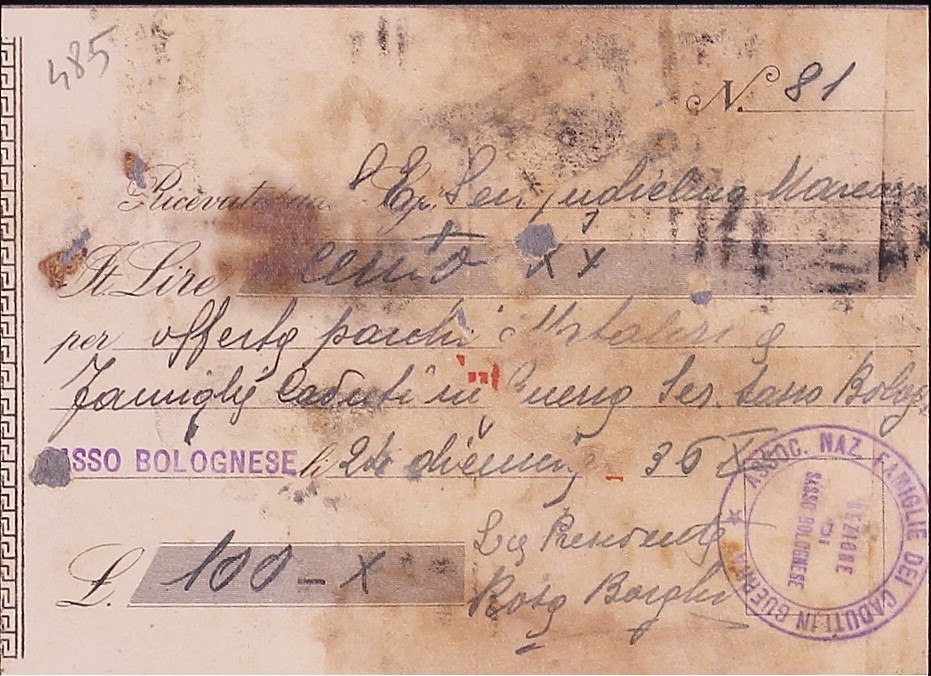 485
N. 81
Ricevut dal S. E. Sen. Guglielmo Marconi
It. Lire cento x x
per offerta pacchi Natalizi a
Famiglie Caduti in Guerra Sez. Sasso Bolog
SASSO BOLOGNESE li 24 dicembre 36 X
£. 100 - x
La Presidente
Rosa Borghi
ASSOC. NAZ. FAMIGLIE DEI CADUTI IN GUERRA
SEZIONE
DI
SASSO BOLOGNESE